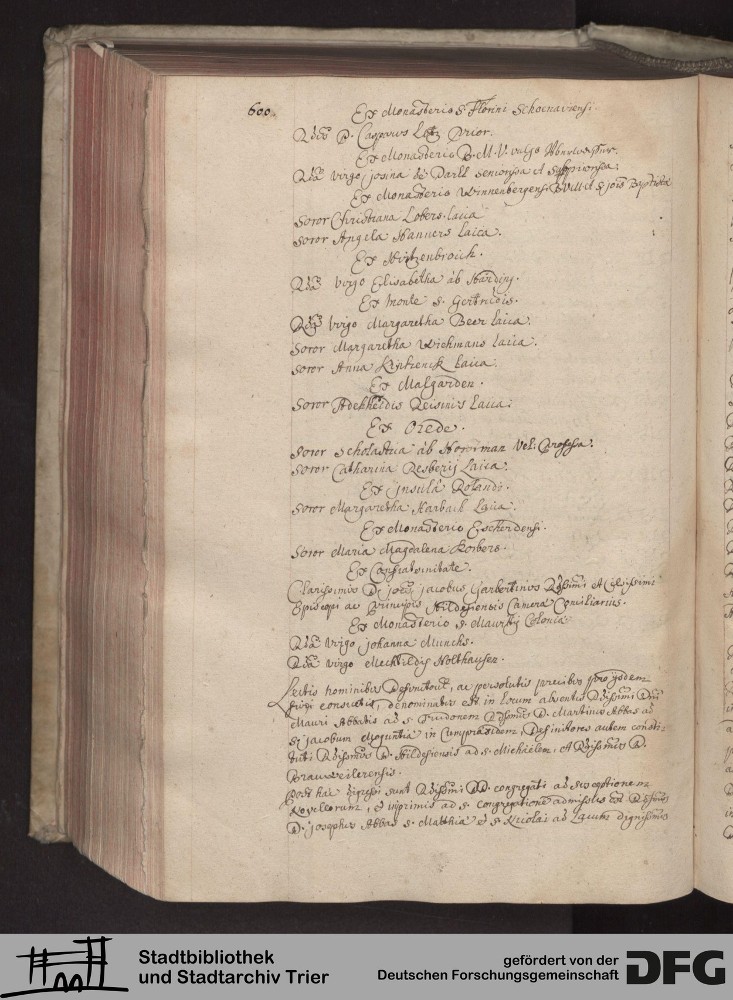 600. Ex Monasterio S. Florini Schoenaviensi.
Rdus D. Casparus Prior.
Ex Monasterio B. M. V. vulgo
Rda Virgo Josina de Darll Seniorissa et
Ex Monasterio Winnenbergensi B. V. M. et S. Jois Baptistae
Soror Christiana Lobers. laica
Soror Angela Hanners Laica.
Ex Hertzenbroich.
Rda Virgo Elisabetha ab Harding.
Ex monte S. Gertrudis.
Rda Virgo Margaretha Beer laica.
Soror Margaretha Wichmans laica.
Soror Anna Laica.
Ex Malgarden.
Soror Adelheidis Reisinis Laica.
Ex Oxede.
Soror Scholastica ab Horstman Vel. Professa.
Soror Catharina Resberij Laica.
Ex Jnsula Rolandi.
Soror Margaretha Harbach Laica.
Ex Monasterio Escherdensi.
Soror Maria Magdalena Korbers.
Ex Confraternitate.
Clarissimus D. Jois Jacobus Garbertinus Rdssimi et Celssimi
Episcopi ac Principis Hildesiensis Camerae Consiliarius.
Ex Monasterio S. Mauritij Coloniae
Rda Virgo Johanna Munchs.
Rda Virgo Mechtildis Holthausen.
Lectis nominibus Defunctorum, ac persolutis precibus pro ijsdem
fieri consuetis, denominatus est in locum absentis Rdssimi Dni
Mauri Abbatis ad S. Trudonem Rdssimus D. Martinus Abbas ad
S. Jacobum Moguntiae in Compraesidem, Definitores autem consti-
tuti Rdssimus D. Hildesiensis ad S. Michaelem, et Rdssimus D.
Brauweilerensis.
Post haec digressi sunt Rdssimi DD. congregati ad susceptionem
Novellorum, et inprimis ad S. Congregationem admissus est Rdssimus
D. Josephus Abbas S. Matthiae et S. Nicolai ad Lacum dignissimus
Stadtbibliothek
und Stadtarchiv Trier
gefördert von der
Deutschen Forschungsgemeinschaft
DFG